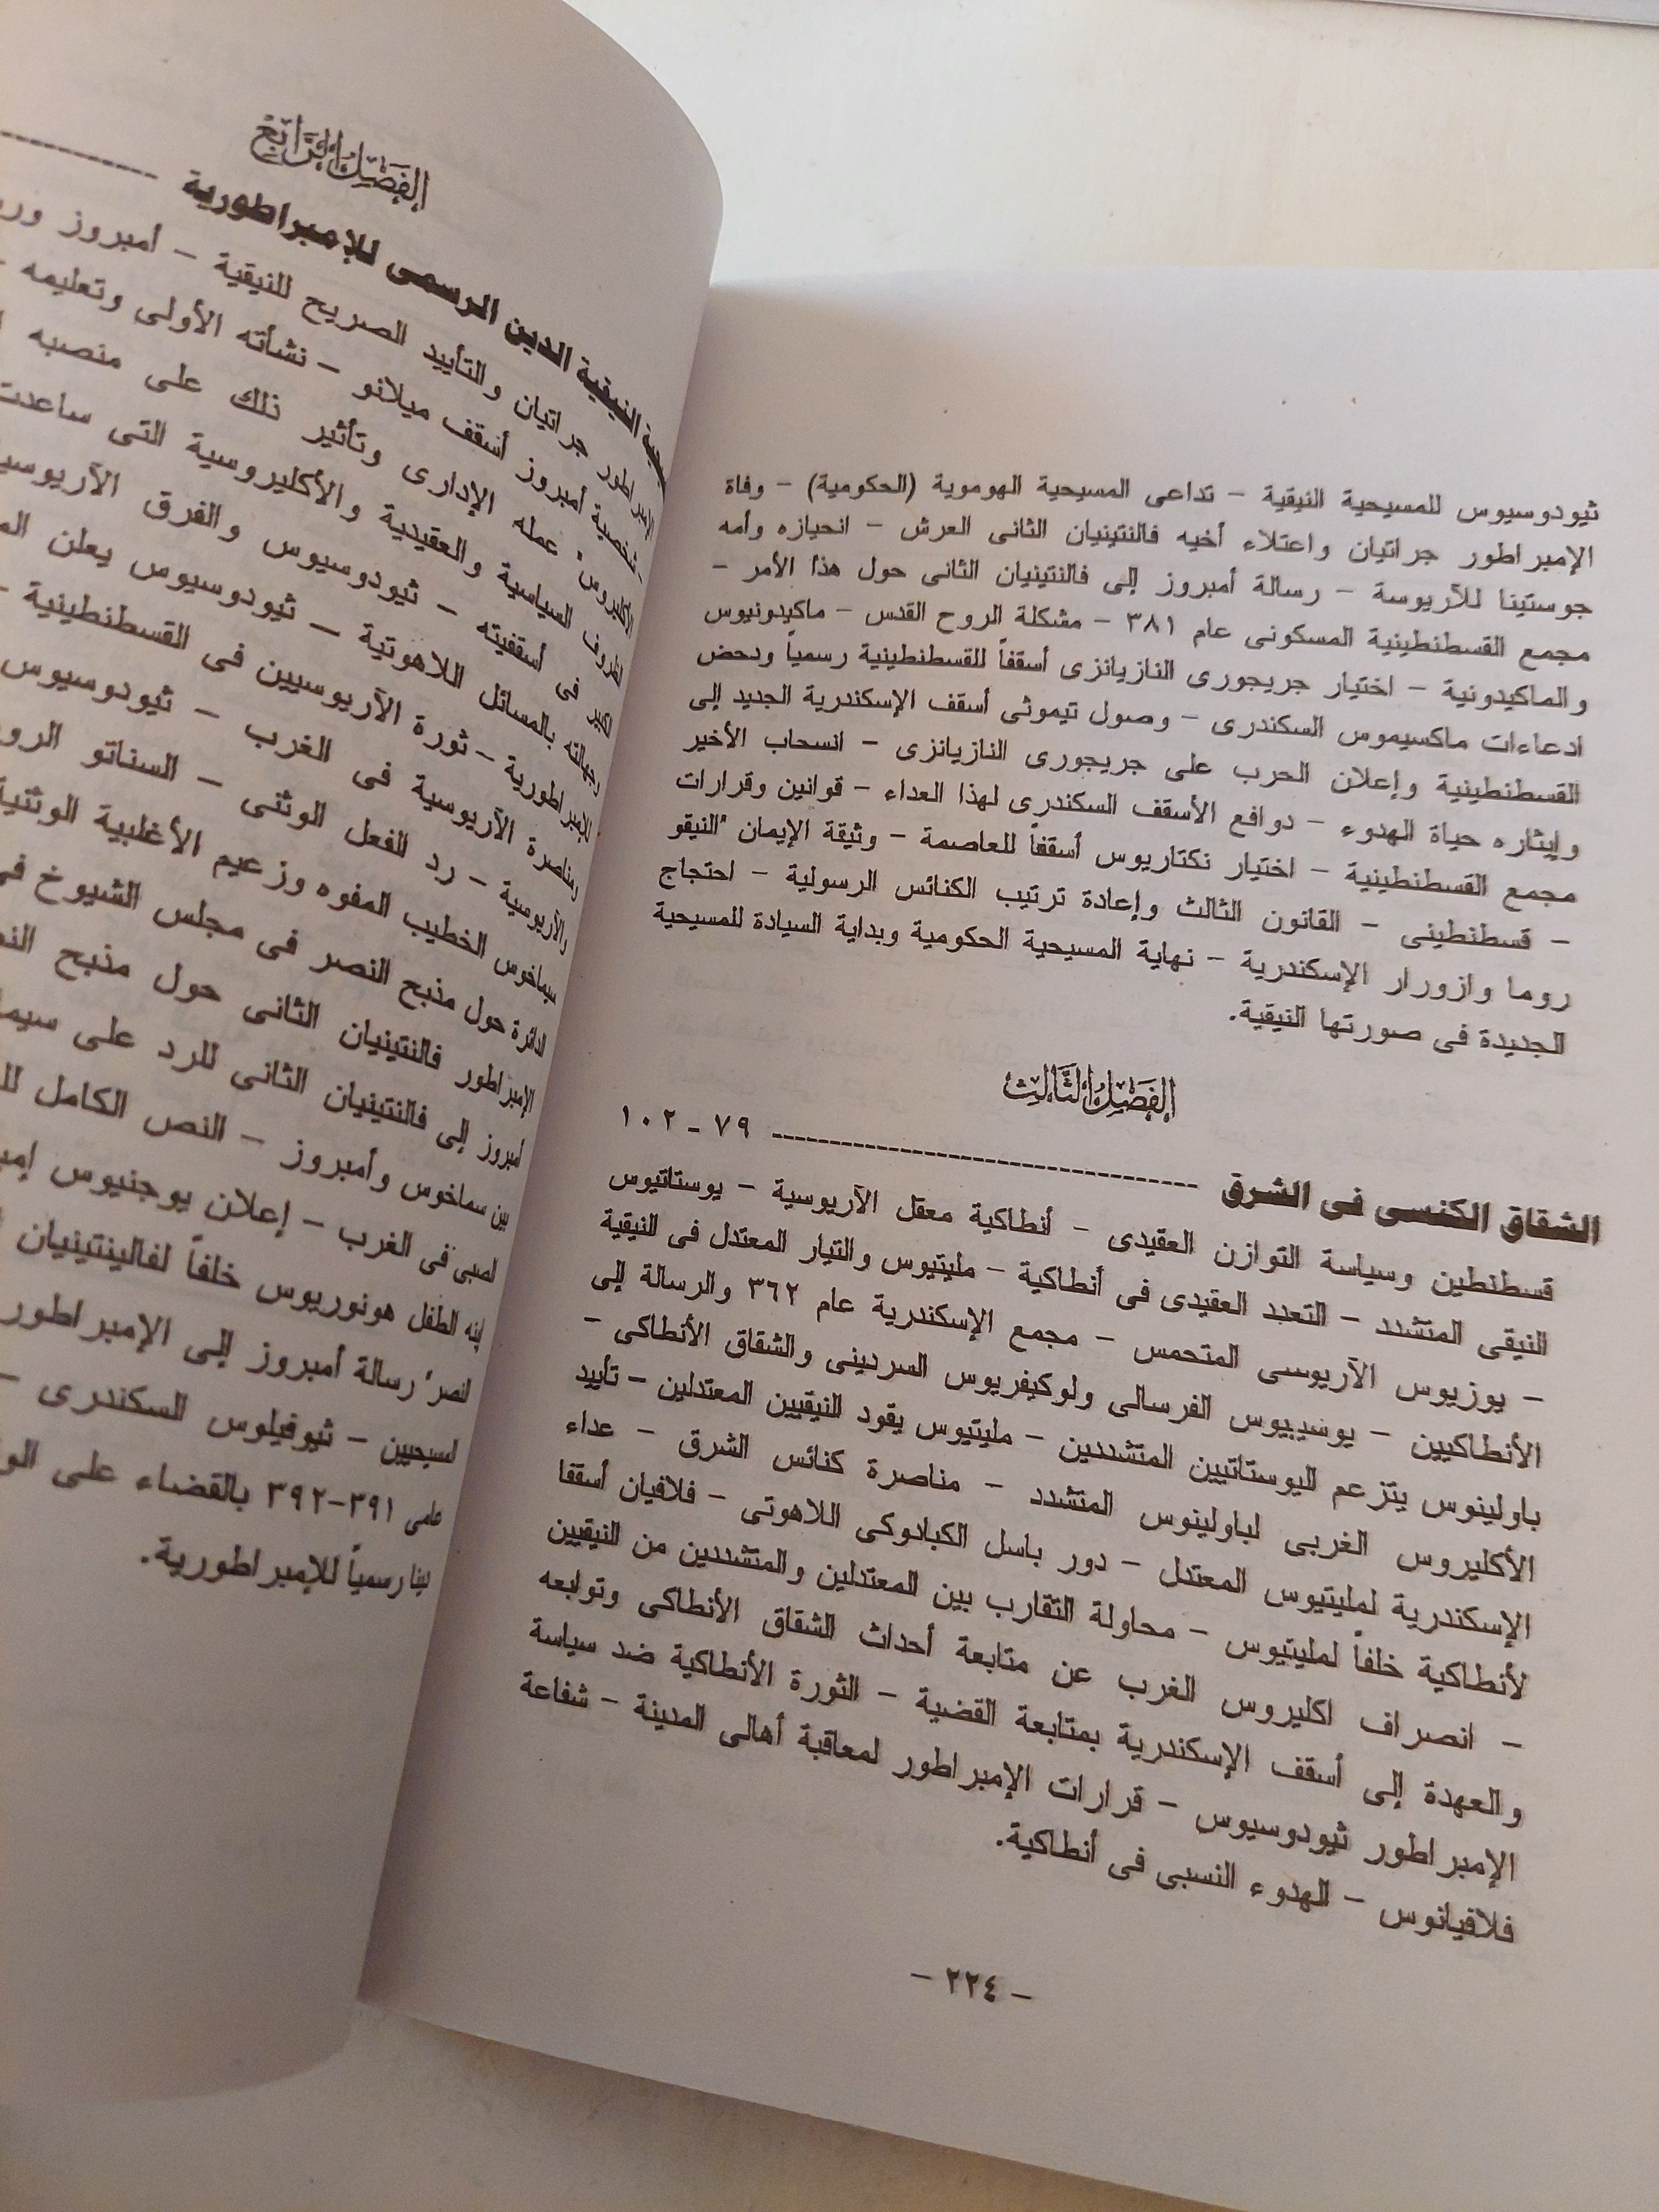 ثيودوسيوس للمسيحية النيقية – تداعى المسيحية الهوموية (الحكومية) – وفاة
الإمبراطور جراتيان واعتلاء أخيه فالنتينيان الثانى العرش – انحيازه وأمه
جوستينا للآريوسة – رسالة أمبروز إلى فالنتينيان الثانى حول هذا الأمر –
مجمع القسطنطينية المسكونى عام ٣٨١ – مشكلة الروح القدس – ماكيدونيوس
والماكيدونية – اختيار جريجورى النازيانزى أسقفاً للقسطنطينية رسمياً ودحض
ادعاءات ماكسيموس السكندرى – وصول تيموثى أسقف الإسكندرية الجديد إلى
القسطنطينية وإعلان الحرب على جريجورى النازيانزى – انسحاب الأخير
وإيثاره حياة الهدوء – دوافع الأسقف السكندرى لهذا العداء – قوانين وقرارات
مجمع القسطنطينية – اختيار نكتاريوس أسقفاً للعاصمة – وثيقة الإيمان "النيقو
– قسطنطينى – القانون الثالث وإعادة ترتيب الكنائس الرسولية – احتجاج
روما وازورار الإسكندرية – نهاية المسيحية الحكومية وبداية السيادة للمسيحية
الجديدة فى صورتها النيقية.
الفصل الثالث
الشقاق الكنسى فى الشرق ---------- ٧٩ - ١٠٢
قسطنطين وسياسة التوازن العقيدى – أنطاكية معقل الآريوسية – يوستاتيوس
النيقى المتشدد – التعدد العقيدى فى أنطاكية – مليتيوس والتيار المعتدل فى النيقية
– يوزيوس الآريوسى المتحمس – مجمع الإسكندرية عام ٣٦٢ والرسالة إلى
الأنطاكيين – يوسيبيوس الفرسالى ولوكيفريوس السردينى والشقاق الأنطاكى –
باولينوس يتزعم اليوستاتيين المتشددين – مليتيوس يقود النيقيين المعتدلين – تأييد
الأكليروس الغربى لباولينوس المتشدد – مناصرة كنائس الشرق – عداء
الإسكندرية لمليتيوس المعتدل – دور باسل الكبادوكى اللاهوتى – فلافيان أسقفا
لأنطاكية خلفاً لمليتيوس – محاولة التقارب بين المعتدلين والمتشددين من النيقيين
– انصراف اكليروس الغرب عن متابعة أحداث الشقاق الأنطاكى وتوابعه
والعهدة إلى أسقف الإسكندرية بمتابعة القضية – الثورة الأنطاكية ضد سياسة
الإمبراطور ثيودوسيوس – قرارات الإمبراطور لمعاقبة أهالى المدينة – شفاعة
فلافيانوس – الهدوء النسبى فى أنطاكية.
– ٢٢٤ –
الفصل الرابع
النيقية الدين الرسمى للإمبراطورية ----------
جراتيان والتأييد الصريح للنيقية – أمبروز
– شخصية أمبروز أسقف ميلانو – نشأته الأولى وتعليمه
عمله الإدارى وتأثير ذلك على منصبه
السياسية والعقيدية والأكليروسية التى ساعدت
فى أسقفيته – ثيودوسيوس والفرق
بالمسائل اللاهوتية – ثيودوسيوس يعلن
– ثورة الآريوسيين فى القسطنطينية –
الآريوسية فى الغرب – ثيودوسيوس
– رد الفعل الوثنى – السناتو
الخطيب المفوه وزعيم الأغلبية
حول مذبح النصر فى مجلس الشيوخ
فالنتينيان الثانى حول مذبح
أمبروز إلى فالنتينيان الثانى للرد على
بين سماخوس وأمبروز – النص الكامل
فى الغرب – إعلان يوجنيوس
الطفل هونوريوس خلفاً لفالينتينيان
رسالة أمبروز إلى الإمبراطور
– ثيوفيلوس السكندرى –
٣٩١-٣٩٢ بالقضاء على
رسمياً للإمبراطورية.